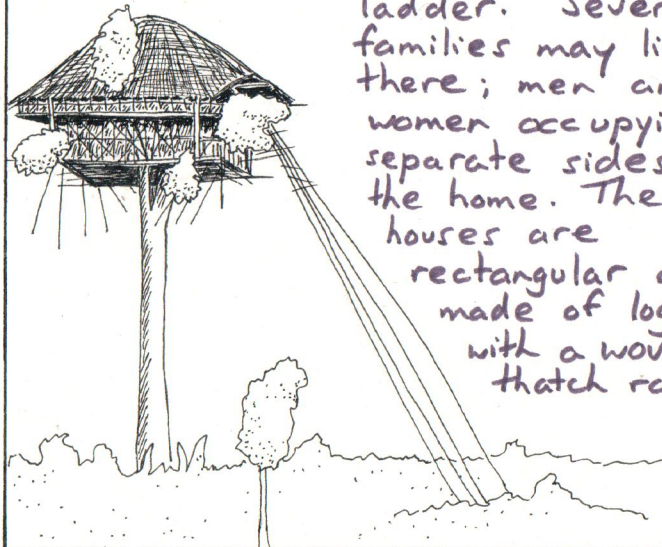 ladder. Sever
families may li
there; men a
women occupyi
separate sides
the home. The
houses are
rectangular
made of loc
with a wov
thatch ro